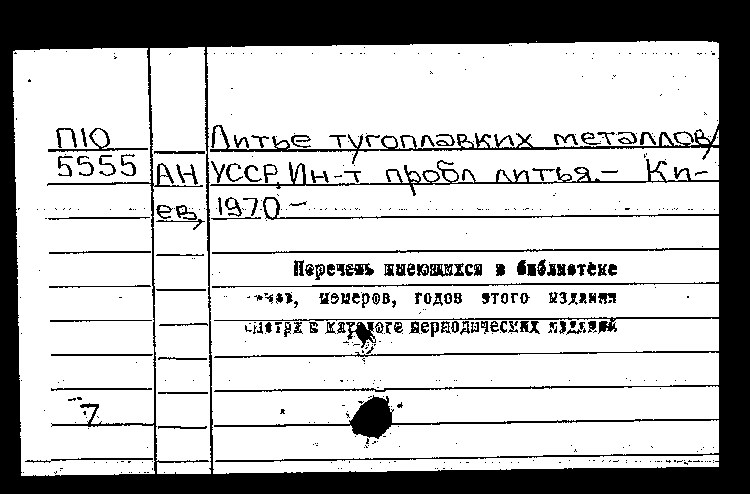 П10 Литье тугоплавких металлов/
5555 АН УССР. Ин-т пробл литья. – Ки-
ев, 1970 –
Перечень имеющихся в библиотеке
номеров, годов этого издания
смотри в каталоге периодических изданий
7